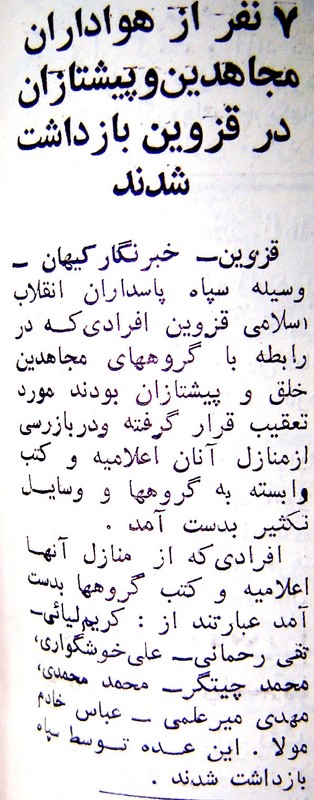 ۷ نفر از هواداران
مجاهدین و پیشتازان
در قزوین بازداشت
شدند
قزوین_ خبرنگار کیهان _
وسیله سپاه پاسداران انقلاب
اسلامی قزوین افرادی‌که در
رابطه با گروههای مجاهدین
خلق و پیشتازان بودند مورد
تعقیب قرار گرفته ودربازرسی
ازمنازل آنان اعلامیه و کتب
وابسته به گروهها و وسایل
تکثیر بدست آمد .
افرادی‌که از منازل آنها
اعلامیه و کتب گروهها بدست
آمد عبارتند از : کریم‌لیائی_
تقی رحمانی_ علی‌خوشگواری،
محمد چیتگر_ محمد محمدی،
مهدی میرعلمی _ عباس خادم
مولا . این عده توسط سپاه
بازداشت شدند .